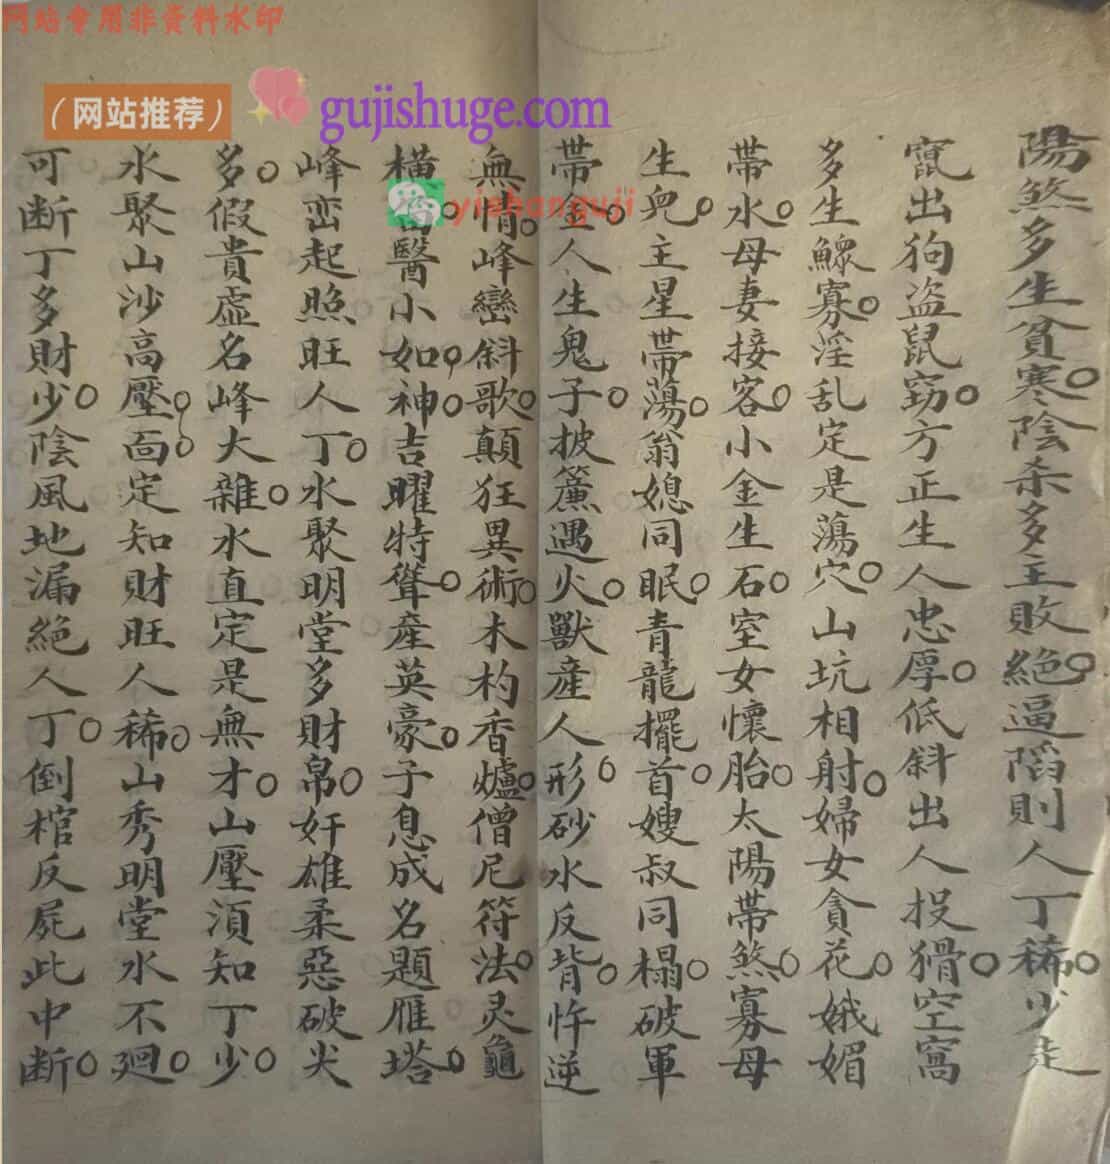 网站专用非资料水印
（网站推荐）
gujishuge.com
yishanguji
陽煞多生貧寒○陰杀多主敗絕○逼陷則人丁稀○少走
竄出狗盗鼠窃○方正生人忠厚○低斜出人投猾○空窩
多生鰥寡○淫乱定是蕩穴○山坑相射○婦女貪花○娥媚
帶水○母妻接客○小金生石○室女懷胎○太陽帶煞○寡母
生兒○主星帶蕩○翁媳同眠○青龍擺首○嫂叔同榻○破軍
帶金○人生鬼子○披簾遇火○獸産人形○砂水反背○忤逆
無情○峰巒斜歌○顛狂異術○木杓香爐○僧尼符法○灵龜
橫○醫小如○神○吉曜特聳○産英豪○子息成名題雁塔○
峰峦起照旺人丁○水聚明堂多財帛○奸雄柔惡破尖
多○假貴虛名峰大雜○水直定是無才○山壓須知丁少○
水聚山沙高壓○面○定知財旺人稀○山秀明堂水不廻○
可断丁多財少○陰風地漏絕人丁○倒棺反屍此中断○